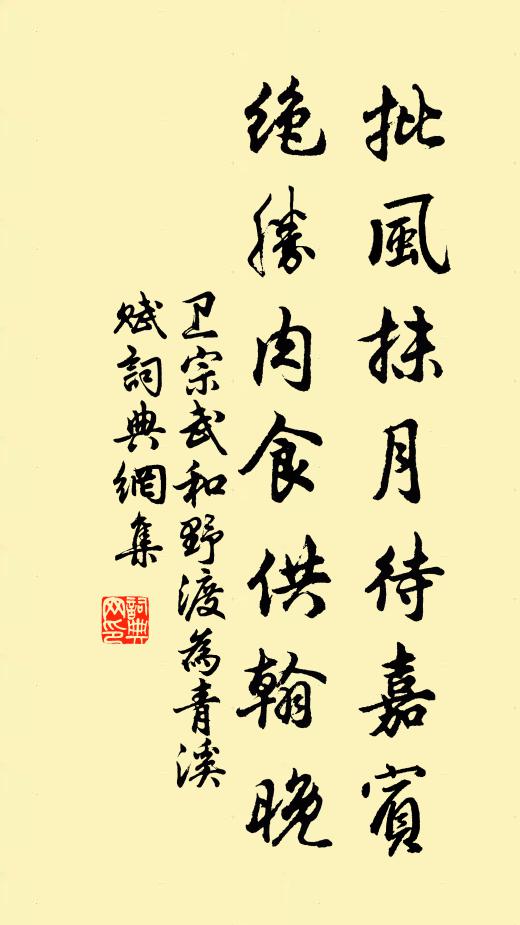 批風抹月待嘉賓
绝勝肉食供翰晚
卫宗武和野渡為青溪
赋詞典網集
詞典
网印